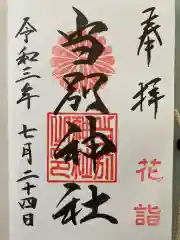 奉拝
花詣
当別神社
令和三年
七月二十四日